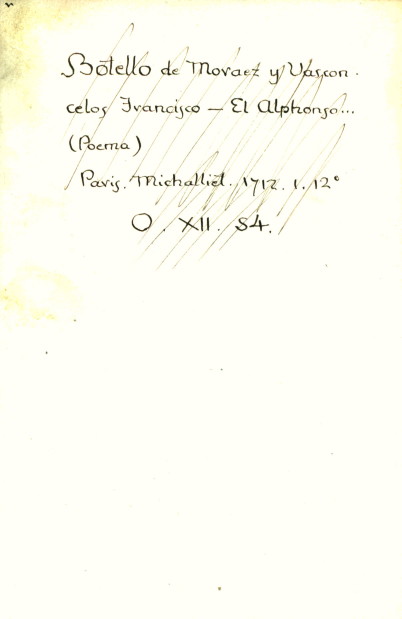 Botello de Moraez y Vascon-
celos Francisco — El Alphonso...
(Poema)
Paris. Michalliet. 1712. 1. 12°
O. XII. 54.